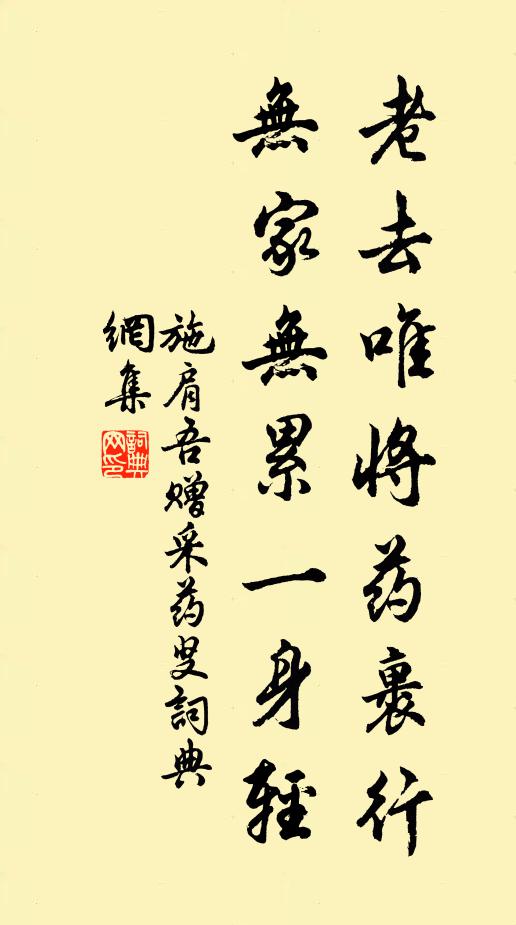 老去唯将药裹行
無家無累一身輕
施肩吾赠采药叟詞典
網集
詞典網印